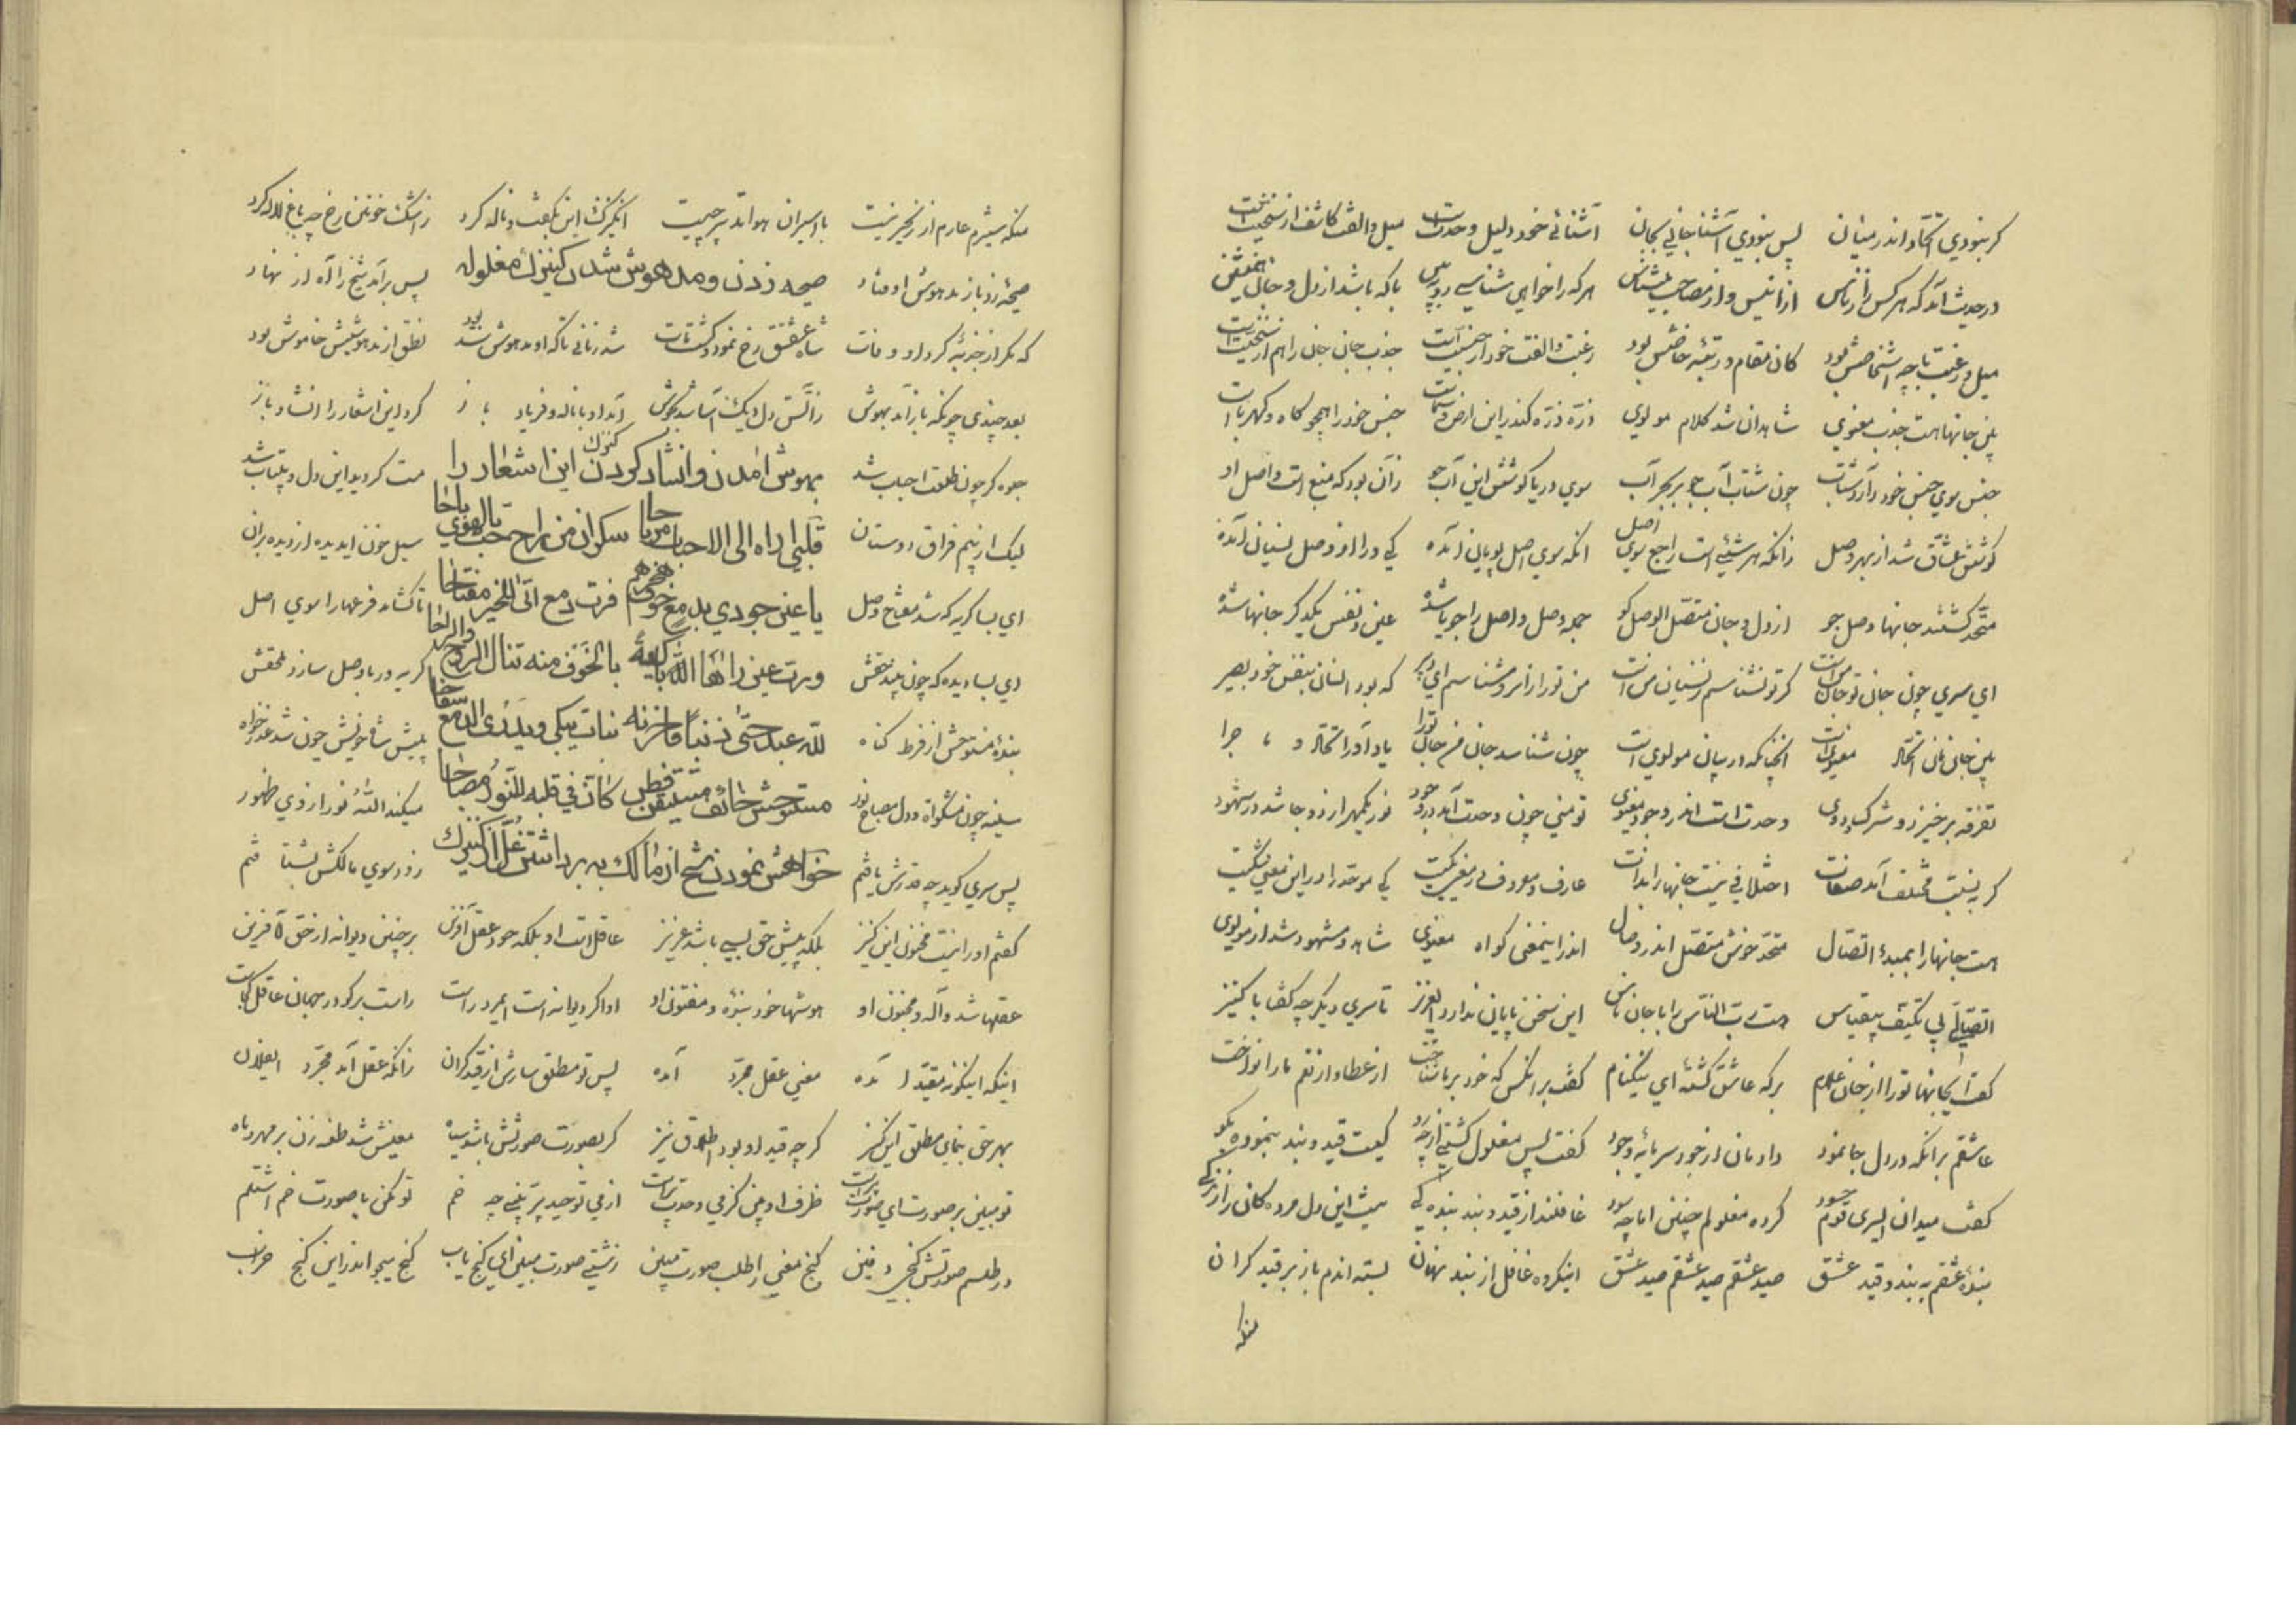 کر نبودی اتحاد اندر میان پس نبودی آشنا جانی بجان آشنائی خود دلیل وحدت است میل والفت کاشف از سنخیت است
در حدیث آمد که هر کس را ز ناس از انیس و از مصاحب میشناس هر که را خواهی شناسی رو ببین با که باشد از دل و جان همنشین
میل و رغبت با چه اشخاصش بود کان مقام و رتبهٔ خاصش بود رغبت والفت خود از جنسیت است جذب جان جان را هم از سنخیت است
بین جانها هست جذب معنوی شاهد آن شد کلام مولوی ذره ذره کاندرین ارض و سماست جنس خود را همچو کاه و کهرباست
جنس سوی جنس خود دارد شتاب چون شتاب آب جو بر بحر آب سوی دریا کوشش این آب جو زان بود که منبع است و اصل او
کوشش عشاق شد از بهر وصل زانکه هر شیئی است راجع سوی اصل انکه سوی اصل پویان آمده کی ورا از وصل نسیان آمده
متحد کشتند جانها وصل جو از دل و جان متصل الوصل کو جمله وصل و اصل را جویا شده عین و نفس یکدکر جانها شده
ای سری چون جان تو جان من است کر تو نشناسم ز نسیان من است من تو را از امر بشناسم ای که بود انسان بنفس خود بصیر
بین جانی اتحاد معنویت انچنانکه در بیان مولویست چون شناسد جان من جان تو را یاد آور اتحاد و ماجرا
تفرقه برخیزد و شرک و دوی وحدت است اندر وجود معنوی تو منی چون وحدت آمد در وجود نور یکمهر از دو جا شد در شهود
کر به نسبت مختلف آمد صفات اختلافی نیست جانها را بذات عارف و معروف در معنی یکیست کی موحد را در این معنی شکیست
هست جانها را بمبدء اتصال متحد خوش متصل اندر وصال اندر اینمعنی کواه معنوی شاهد و مشهود شد از مولوی
اتصالی بی تکیف بیقیاس هست رب الناس را با جان ناس این سخن پایان ندارد ای عزیز تا سری دیکر چه کفت با کنیز
کفت اینجا بنها تو را از جان غلام بر که عاشق کشتهٔ ای نیکنام کفت بر انکس که خود بر ما شناخت از عطا و از نعم ما را نواخت
عاشقم بر انکه در دل جا نمود داد مان از خود سرمایهٔ وجود کفت پس مغلول کشتی از چه رو کیست قید و بند بنموده بکو
کفت میدان ای سری قوم حسود کرده مغلولم چنین اما چه سود غافلند از قید و بند بنده کی نیست این دل مرده کان را زندکی
بندهٔ عشقم به بند و قید عشق صید عشقم صید عشقم صید عشق اینکروه غافل از بند نهان بسته اندم باز بر قید کران
منکه
منکه شیرم عارم از زنجیر نیست با اسیران هوا تدبیر چیست ان کنیزک این بکفت و ناله کرد ز اشک خونین رخ چه باغ لاله کرد
صیحهٔ زد باز مدهوش اوفتاد صیحه زدن و مدهوش شدن کنیزک مغلوله پس برآمد شیخ را آه از نهاد
که مکر از جذبهٔ کرد او وفات شاه عشقش رخ نمود و کشت مات شد زمانی تا که او مدهوش بود نطق از مدهوشیش خاموش بود
بعد چندی چونکه باز آمد بهوش ز آتش دل دیک آسا شد بجوش آمد او با ناله و فریاد باز کرد این اشعار را انشاد باز
جلوه کر چون طلعت احباب شد بهوش امدن و انشاد کردن کنیزک این اشعار را مست کردید این دل و بیتاب شد
لیک از بیم فراق دوستان قلبی اراه الی الاحباب مرتاحا سکران من راح حب بالهوی باحا سیل خون ای دیده از دیده بران
ای بسا کریه که شد مفتاح وصل یا عین جودی بدمع خوف هجرهم فرب دمع اتی للخیر مفتاحا تا کشاند فرعها را سوی اصل
ای بسا دیده که چون بیند حقش ورب عین راها الله باکیة بالخوف منه تنال الروح والراحا کریه در با وصل سازد ملحقش
بندهٔ مستوحش از فرط کناه لله عبد جنی ذنبا فاحزنه فبات یبکی و یذری الدمع سفاحا پیش شاه خویش چون شد عذر خواه
سینه چون مشکوة و دل مصباح نور مستوحش خائف مستیقن فطن کان فی قلبه للنور مصباحا میکند الله نور از وی ظهور
پس سری کوید چه قدرش یافتم خواهش نمودن شیخ از مالک به برداشتن غل از کنیزک زود سوی مالکش بشتافتم
کفتم او را نیست مجنون این کنیز بلکه پیش حق بسی باشد عزیز عاقلست او بلکه خود عقل آفرین بر چنین دیوانه از حق آفرین
عقلها شد واله و مجنون او هوشها خود بنده و مفتون او او اکر دیوانه است ایمرد راست راست بر کو در جهان عاقل کجاست
اینکه اینکونه مقید آمده معنی عقل مجرد آمده پس تو مطلق سازش از قید کران زانکه عقل آمد مجرد ایفلان
بهر حق بنمای مطلق این کنیز کر چه قید او بود اطلاق نیز کر بصورت صورتش باشد سیاه معنیش شد طعنه زن بر مهر و ماه
تو مبین بر صورت ای صورت پرست ظرف او بین کز می وحدت پر است از می توحید پر بینی چه خم تو مکن با صورت خم اشتلم
در طلسم صورتش کنجی دفین کنج معنی را طلب صورت مبین زشتی صورت مبین ای کنج یاب کنج میجو اندر این کنج خراب